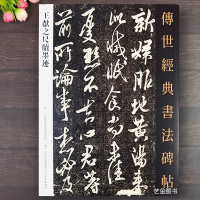 傳世經典書法碑帖
王獻之尺牘墨迹
新婦服地黃湯來
似減眠食尚未佳
憂懸不去心君等
前所論事想必及